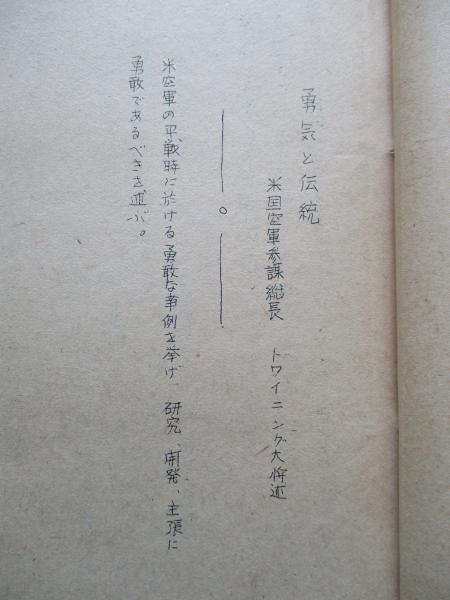 勇気と伝統
米国空軍参謀総長 トワイニング大将述
米空軍の平戦時に於ける勇敢な事例を挙げ、研究、開発、主張に
勇敢であるべきを述ぶ。